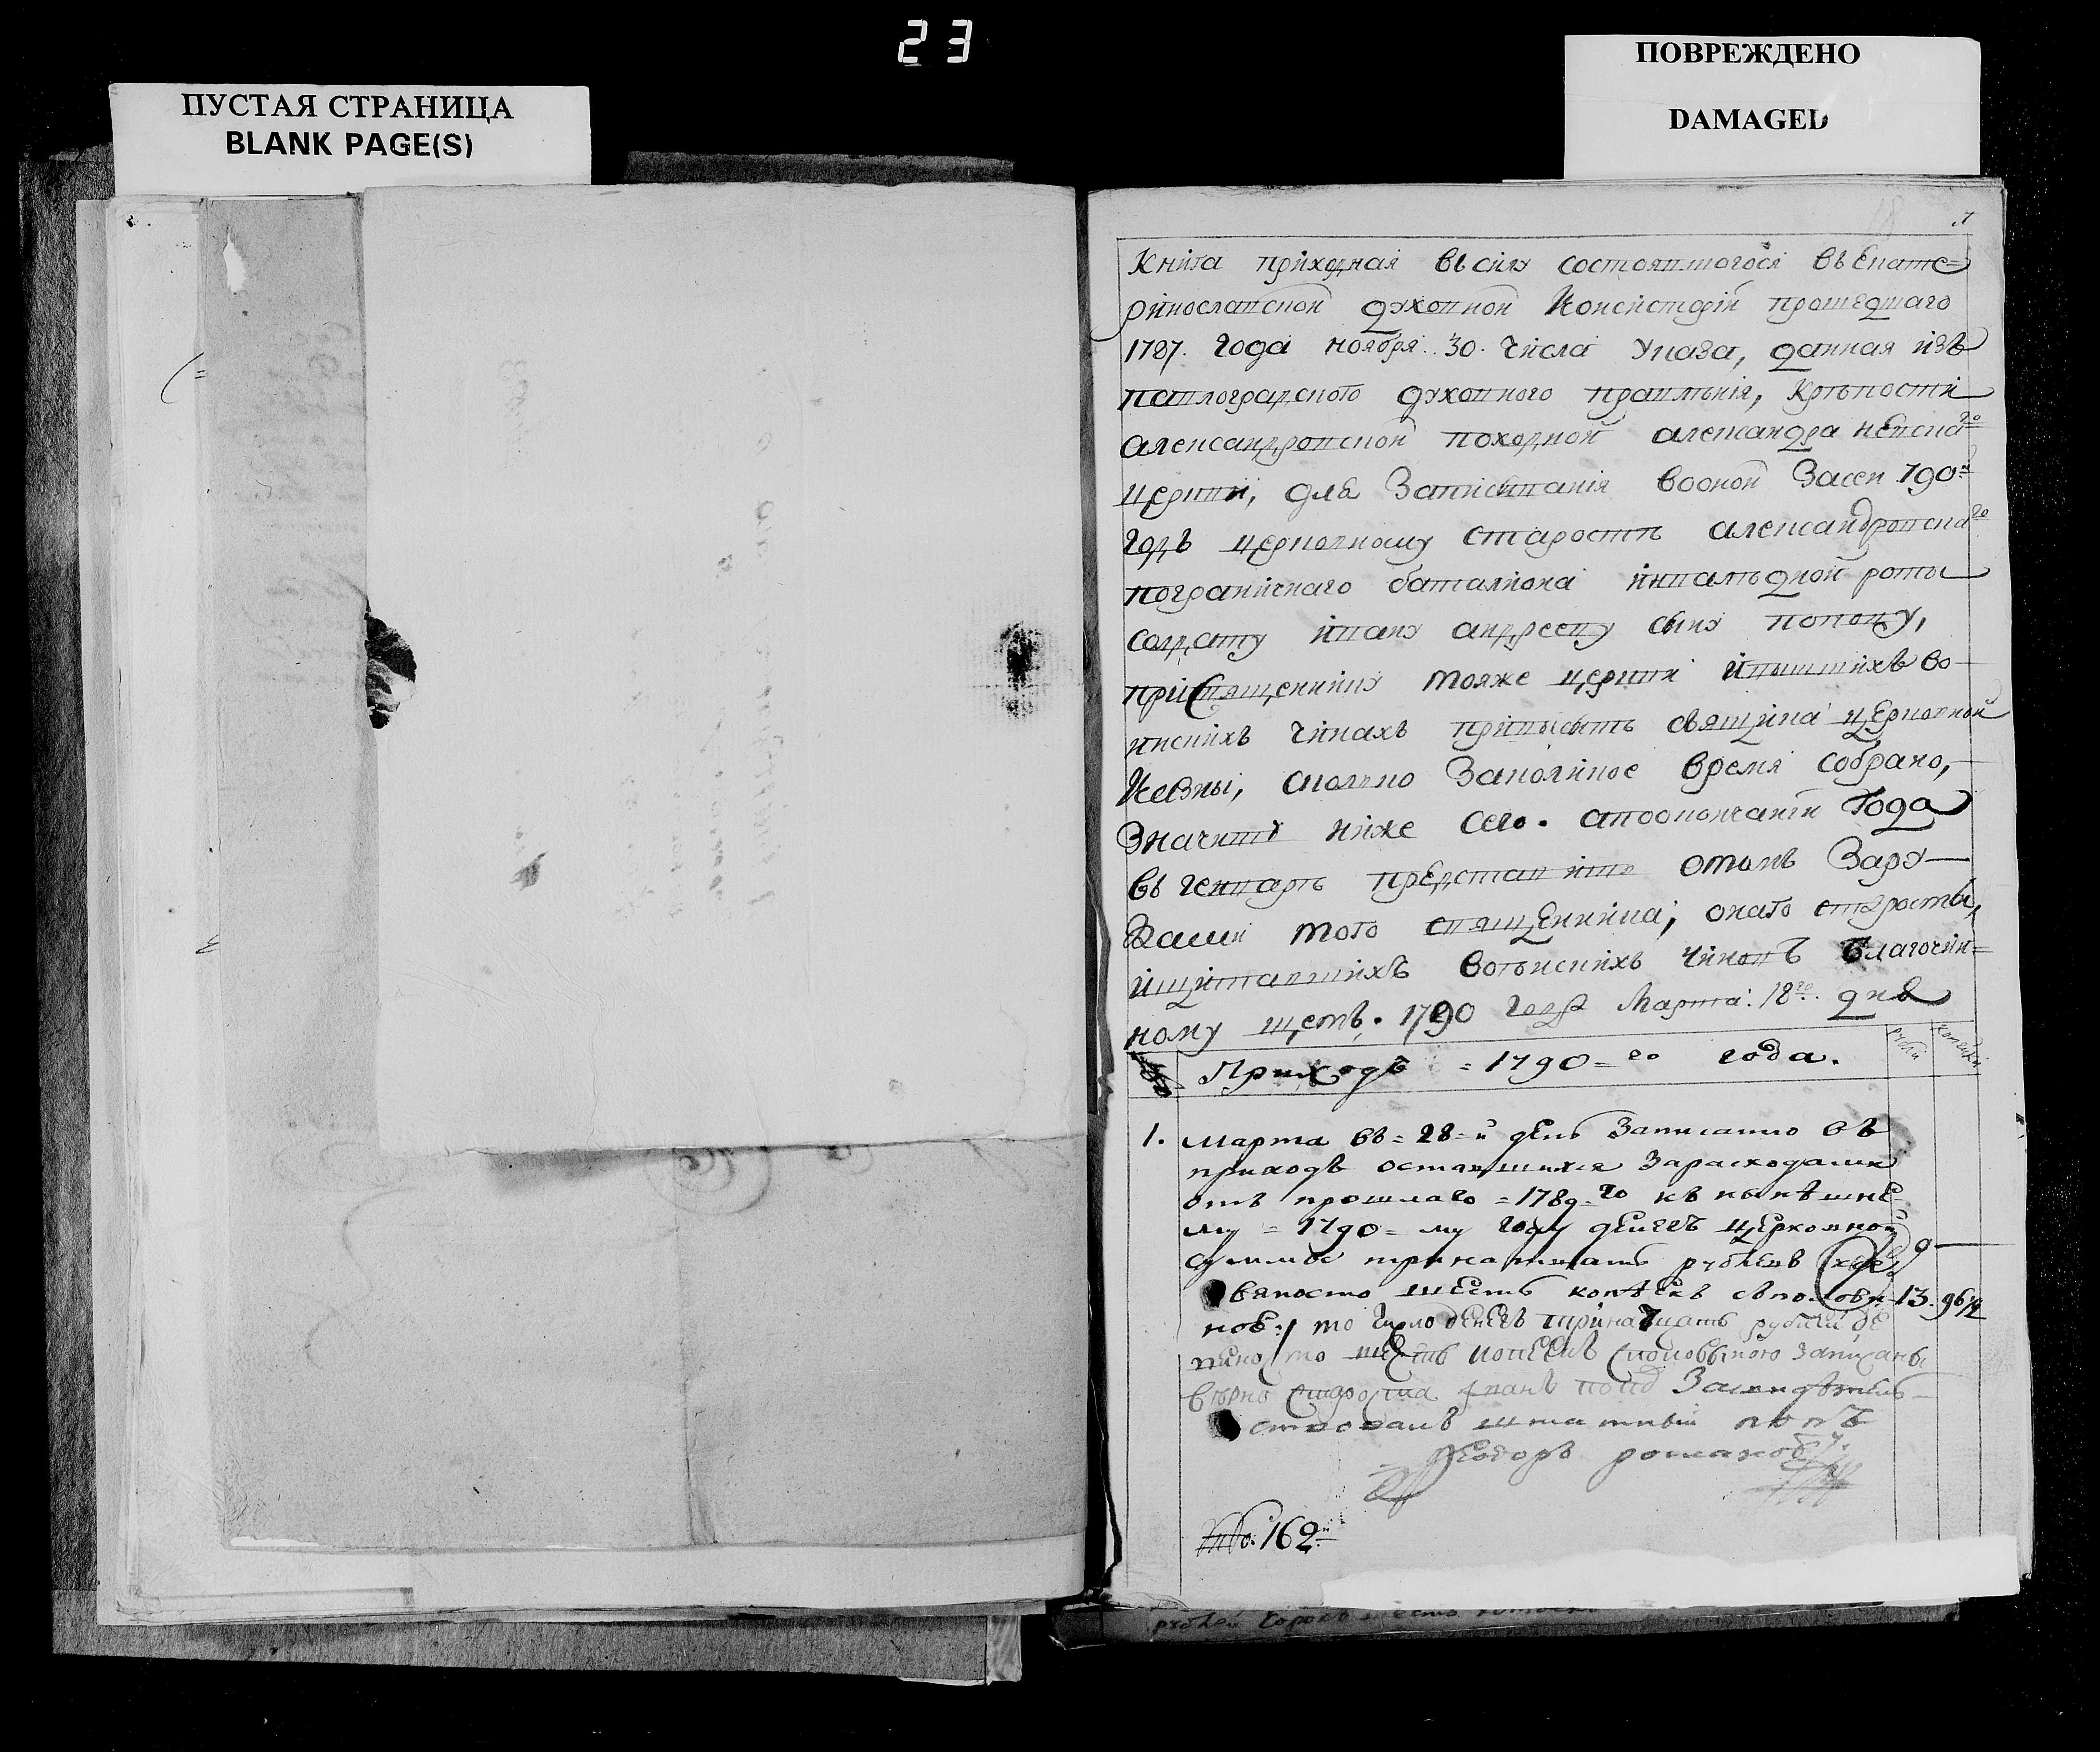 23
ПУСТАЯ СТРАНИЦА
BLANK PAGE(S)
ПОВРЕЖДЕНО
DAMAGED
Книга приходная въ силу состоявшогося въ Екате=
ринославской духовной Консисторіи прошедшаго
1787. года ноября 30. числа Указа, данная изъ
павлоградского духовного правленія, Крѣпости
александровской походной александра невска го
церкви, для Записыванія во оной Засей 790й
годъ церковному старостѣ александровска го
пограничнаго баталиона инвалѣдной роты
солдату ивану андрееву сыну попову,
при священнику тояже церкви
инскихъ чинахъ церковной
сколко время собрано,
Значитъ ниже сего. а по окончаніи Года
въ генварѣ представить о томъ За ру-
ками того священника, онаго старосты,
воѣнскихъ чиновъ благочин=
ному щетъ. 1790 года Марта. 18го. дня
Приходъ = 1790 = го года.
рубли
копейки
1. Марта въ = 28 = й день Записанно въ
приходъ оставшихся За расходами
отъ прошлаго = 1789 = го къ нынѣшне=
му = 1790 = му году денегъ церковной
суммы тринатцать рублевъ
вяносто шесть копѣекъ съ полови 13. 96 1/2
ною. / то число денегъ тринатцать рублей де
вяносто шесть копеекъ записаны
вѣрно староста иванъ попъ Засвидѣтель
ствовалъ штатный попъ
Феодоръ романовъ
162й
рублей сорокъ шесть копѣекъ